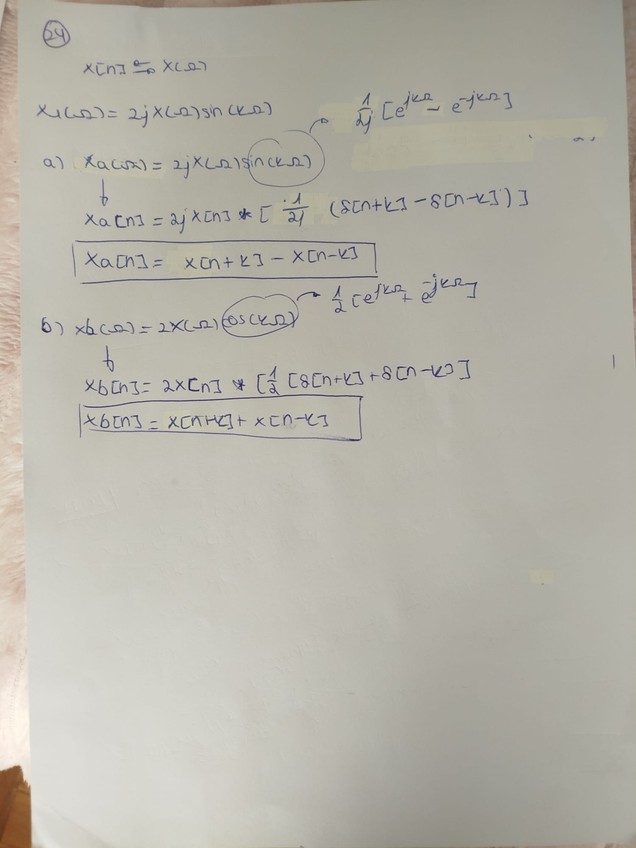 24
x[n] ⇌ X(Ω)
X1(Ω) = 2j X(Ω) sin(kΩ)
1/2j [e^jkΩ - e^-jkΩ]
a) Xa(Ω) = 2j X(Ω) sin(kΩ)
xa[n] = 2j x[n] * [ 1/2j (δ[n+k] - δ[n-k]) ]
xa[n] = x[n+k] - x[n-k]
1/2 [e^jkΩ + e^-jkΩ]
b) Xb(Ω) = 2X(Ω) cos(kΩ)
xb[n] = 2x[n] * [1/2 [δ[n+k] + δ[n-k] ]
xb[n] = x[n+k] + x[n-k]